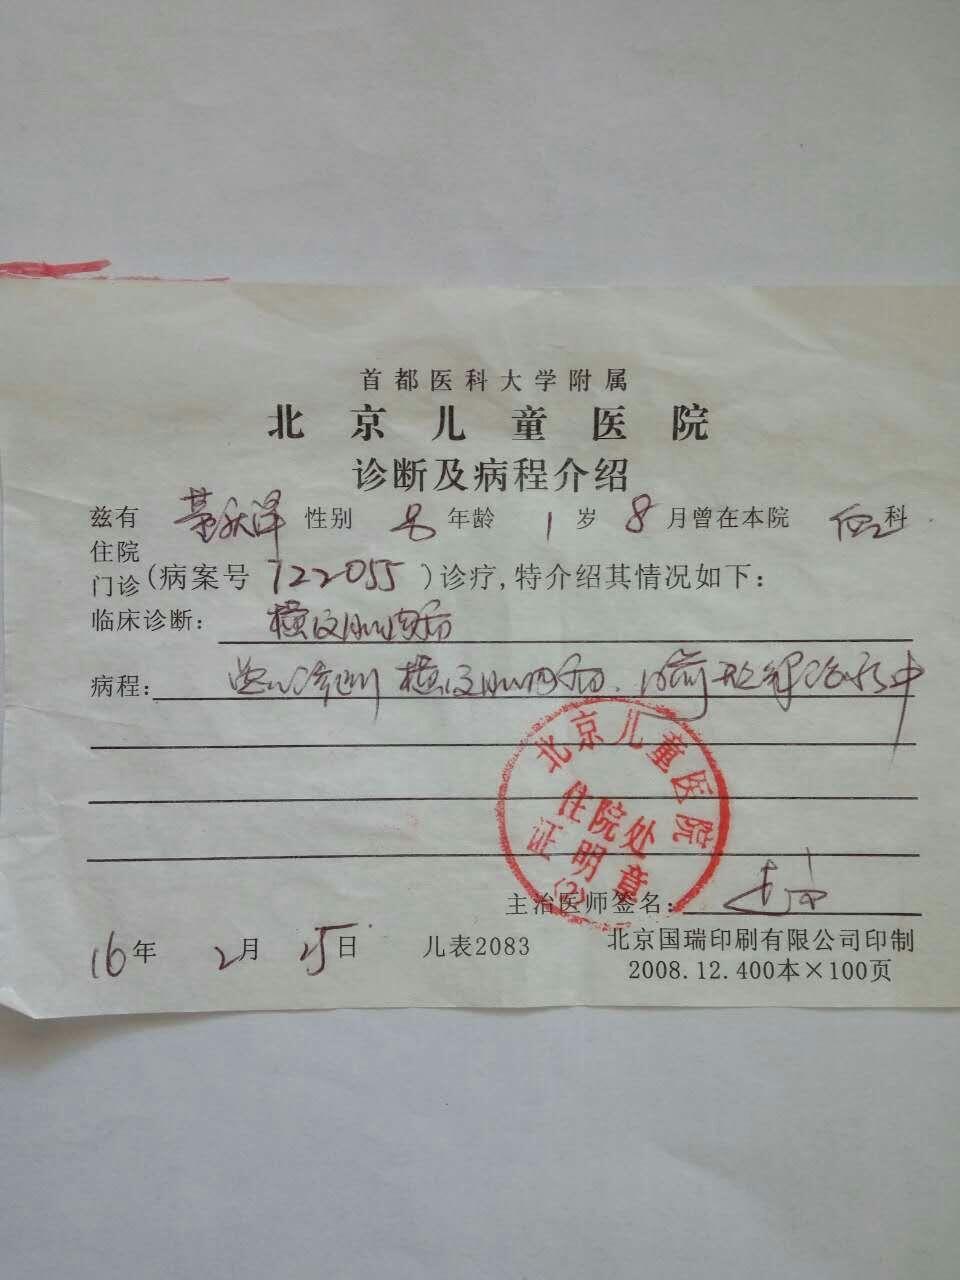 首都医科大学附属
北京儿童医院
诊断及病程介绍
兹有 性别 年龄 1 岁 8 月曾在本院 科
住院
门诊(病案号 722055 )诊疗,特介绍其情况如下:
临床诊断: 横纹肌肉瘤
病程: 临床诊断 横纹肌肉瘤、目前 治疗中
北京儿童医院
住院处
证明章
(2)
主治医师签名:
16年 2月 25日 儿表2083 北京国瑞印刷有限公司印制
2008.12.400本×100页